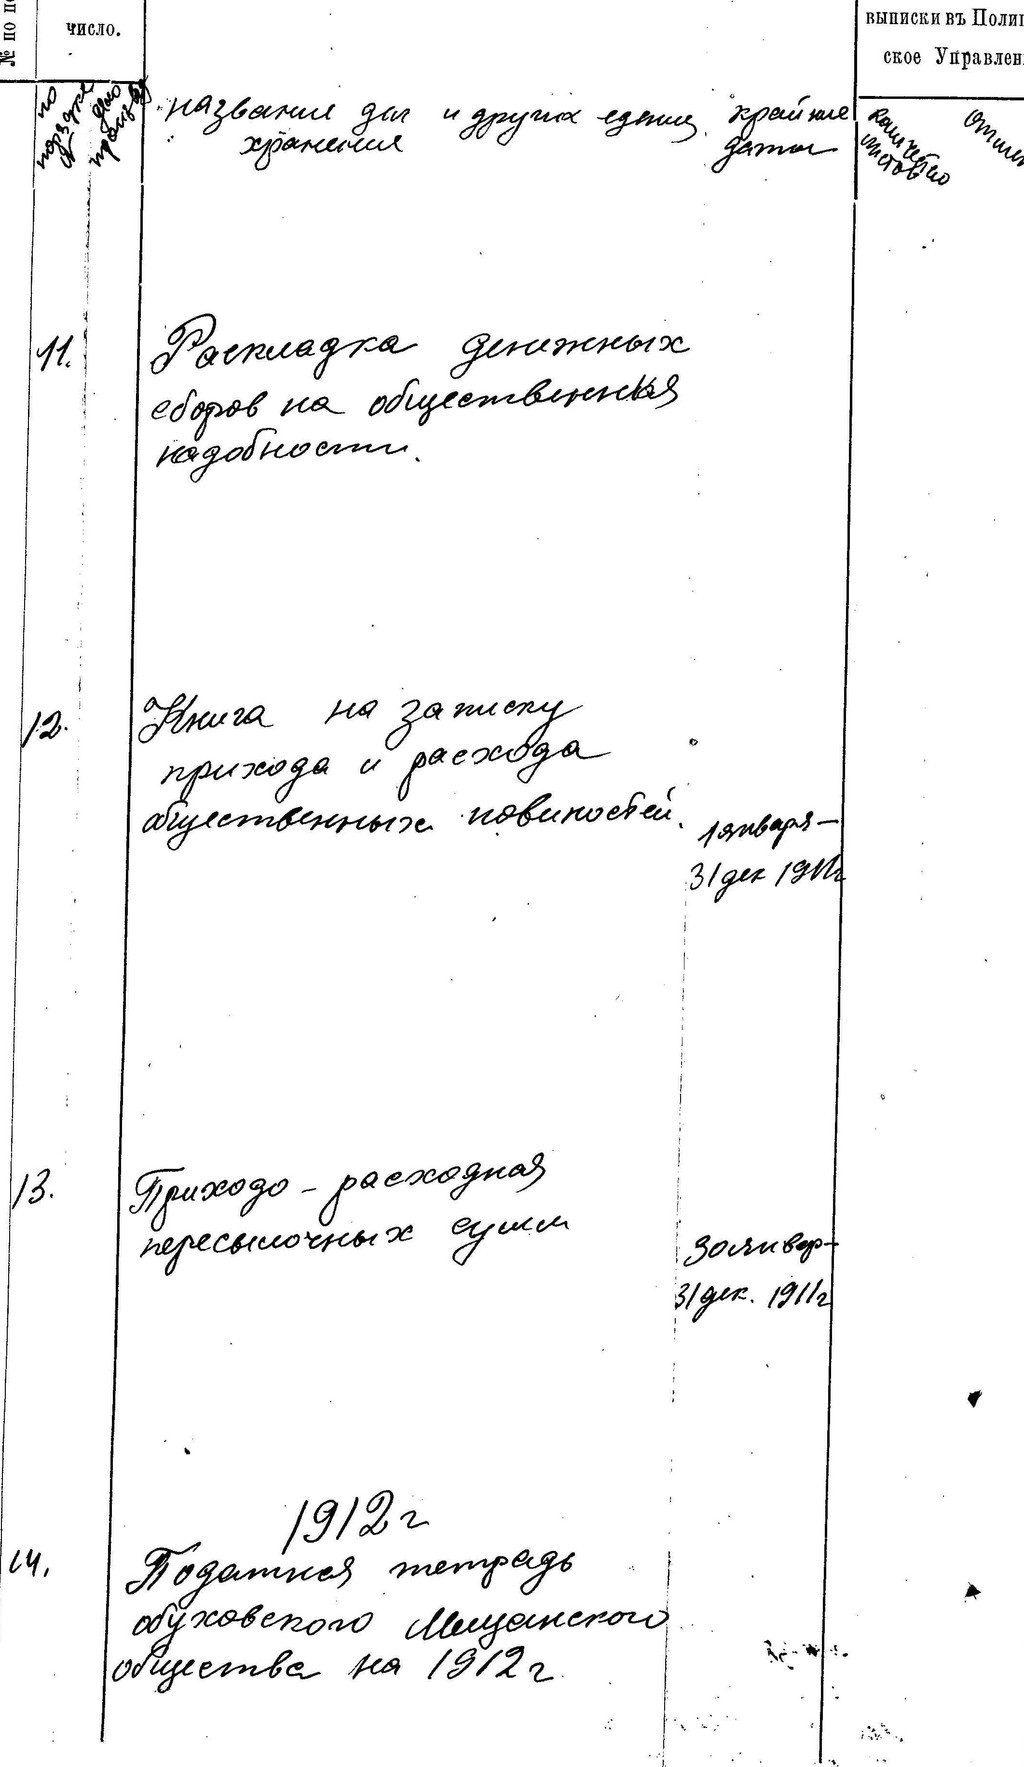 № по по
число.
выписки въ Полиц
ское Управлен
№ по порядке
дело произв
название дел и других единиц крайние
хранения
даты
количество
листов
11. Раскладка денежных
сборов на общественныя
надобности.
12. Книга на записку
прихода и расхода
общественных повиностей.
1 января –
31 дек 1911г
13. Приходо – расходная
пересылочных сумм
30 январ –
31 дек. 1911г
1912 г
14. Податная тетрадь
обуховского Мещанского
общества на 1912 г